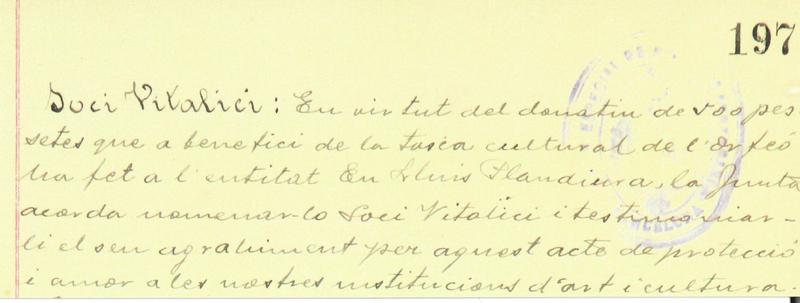 197
Soci Vitalici: En virtut del donatiu de 500 pes
setes que a benefici de la tasca cultural de l'orfeó
ha fet a l'entitat En Lluis Plandiura, la Junta
acorda nomenar-lo Soci Vitalici i testimoniar-
li el seu agrahiment per aquest acte de protecció
i amor a les nostres institucions d'art i cultura.